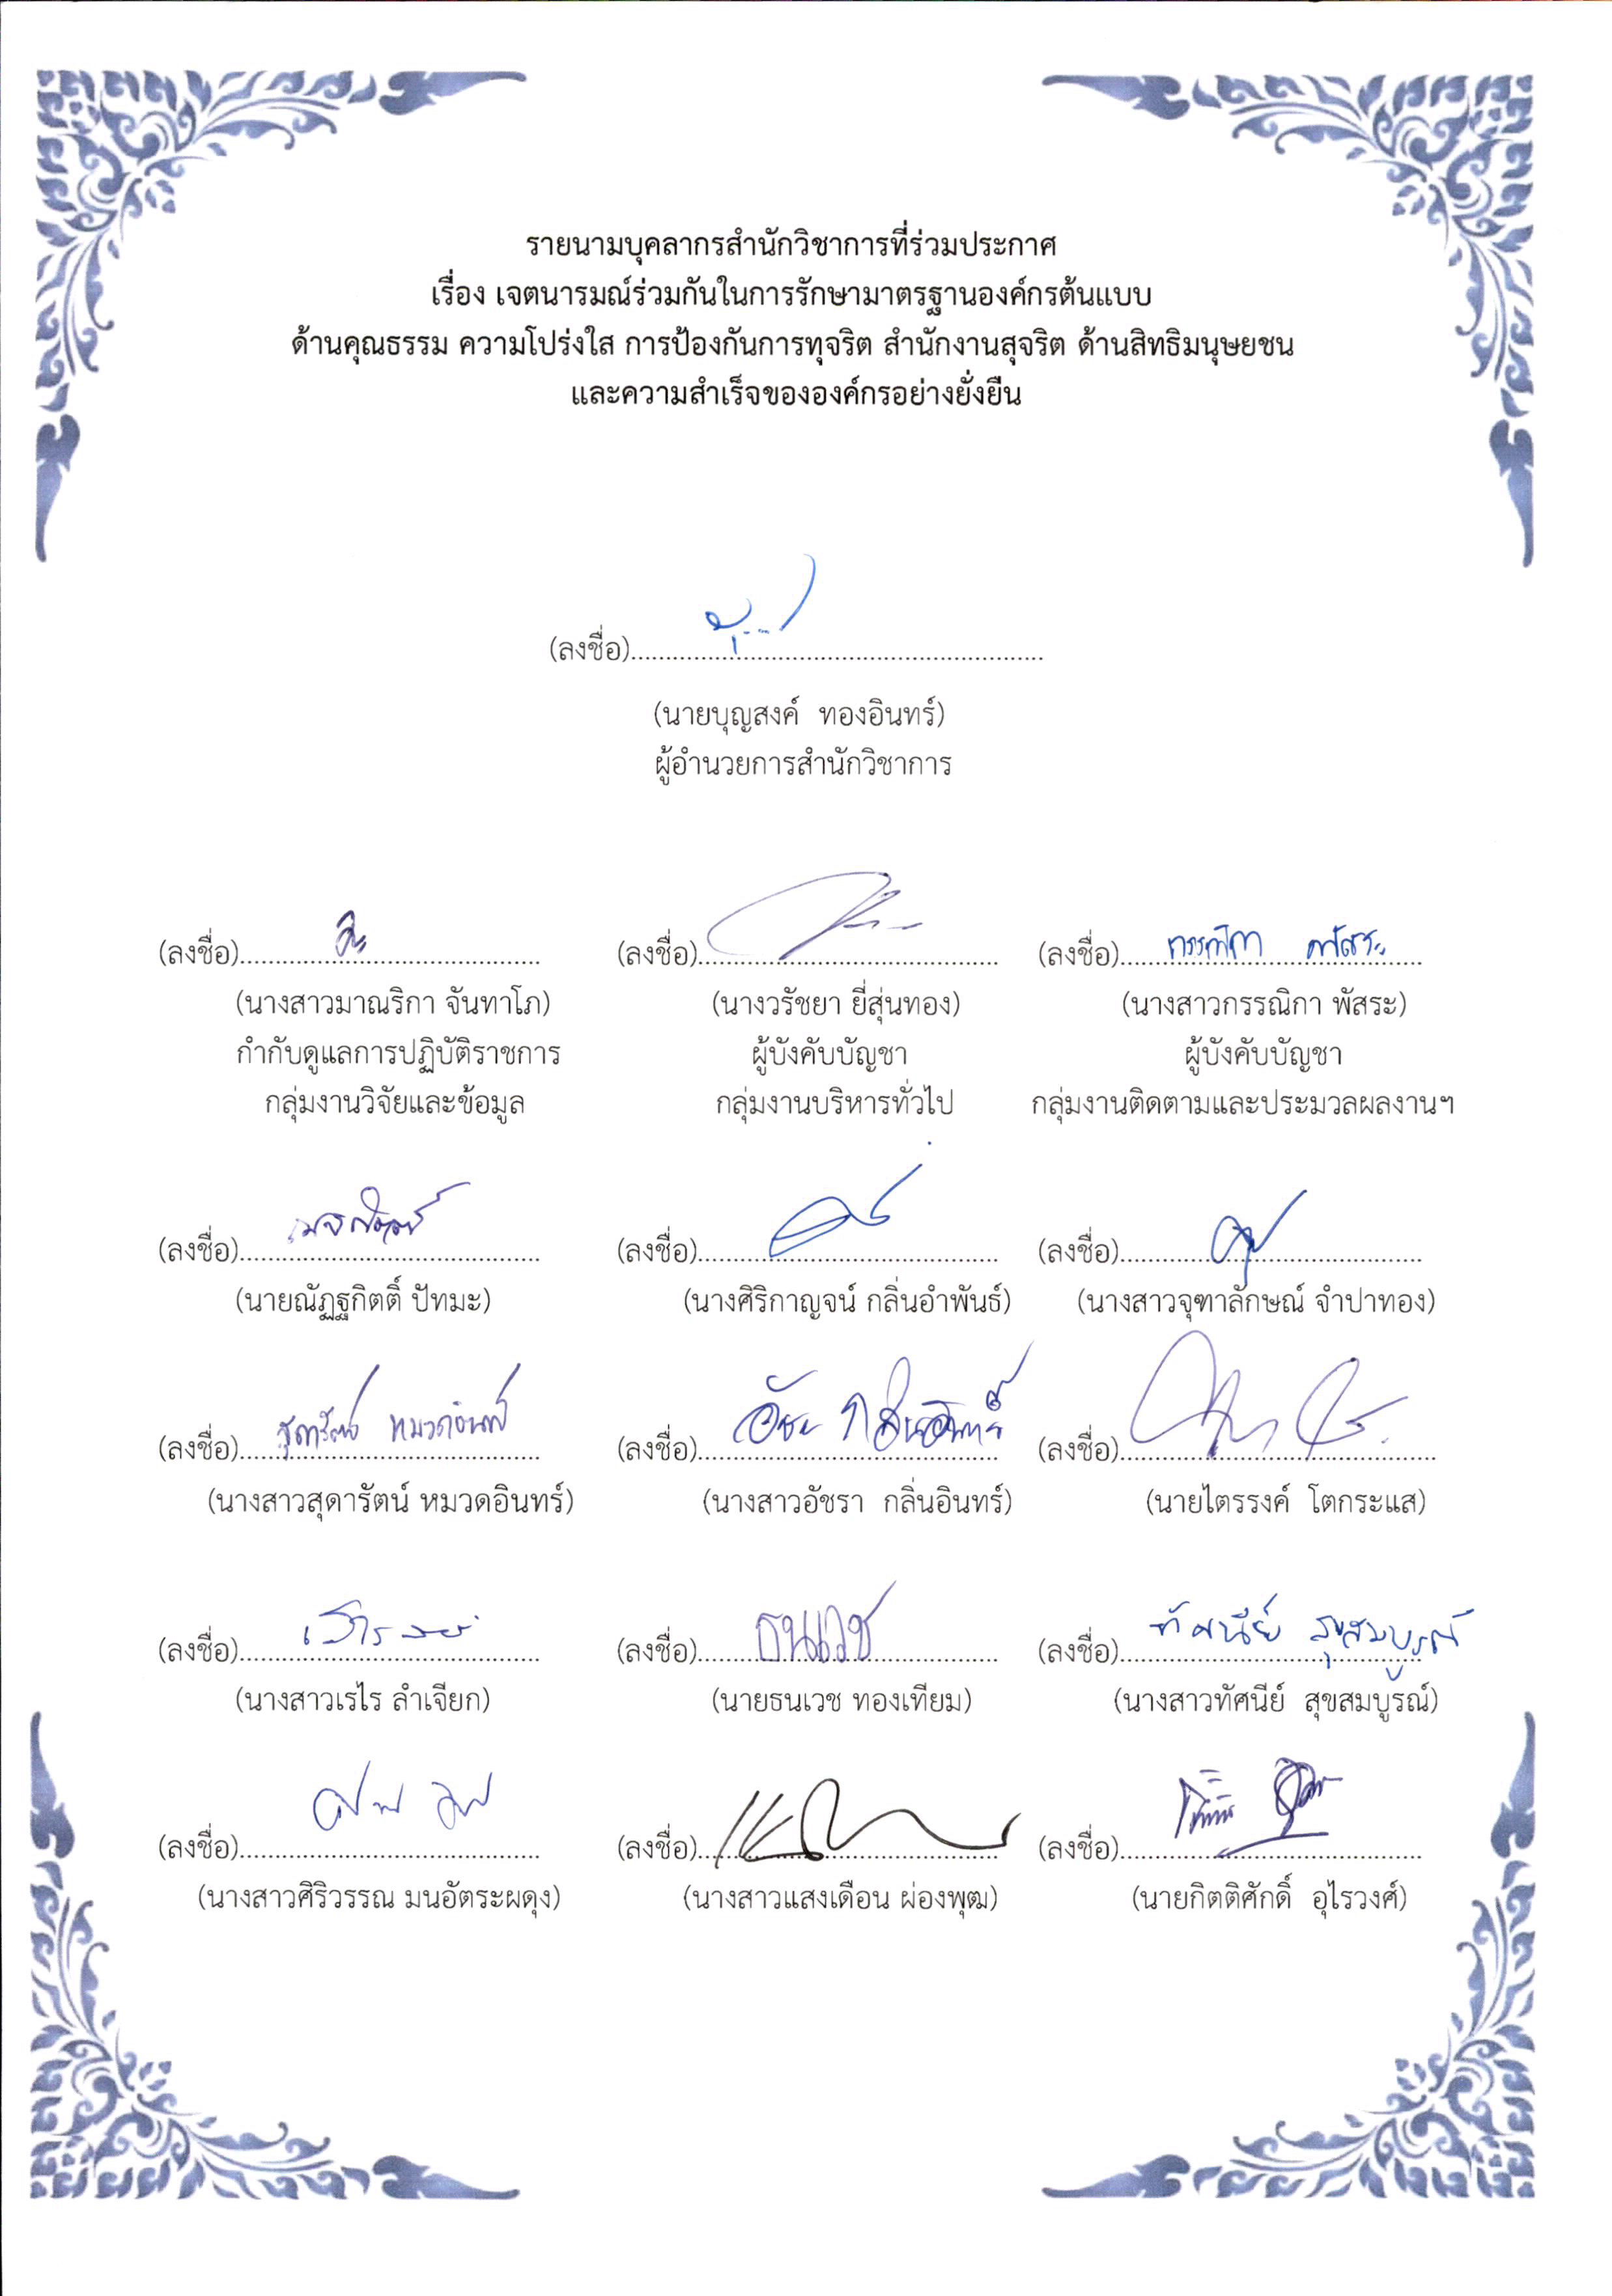 รายนามบุคลากรสำนักวิชาการที่ร่วมประกาศ
เรื่อง เจตนารมณ์ร่วมกันในการรักษามาตรฐานองค์กรต้นแบบ
ด้านคุณธรรม ความโปร่งใส การป้องกันการทุจริต สำนักงานสุจริต ด้านสิทธิมนุษยชน
และความสำเร็จขององค์กรอย่างยั่งยืน
(ลงชื่อ)
(นายบุญสงค์ ทองอินทร์)
ผู้อำนวยการสำนักวิชาการ
(ลงชื่อ) (ลงชื่อ) (ลงชื่อ) กรรณิกา พัสระ
(นางสาวมาณริกา จันทาโภ) (นางวรัชยา ยี่สุ่นทอง) (นางสาวกรรณิกา พัสระ)
กำกับดูแลการปฏิบัติราชการ ผู้บังคับบัญชา ผู้บังคับบัญชา
กลุ่มงานวิจัยและข้อมูล กลุ่มงานบริหารทั่วไป กลุ่มงานติดตามและประมวลผลงานฯ
(ลงชื่อ) (ลงชื่อ) (ลงชื่อ)
(นายณัฏฐกิตติ์ ปัทมะ) (นางศิริกาญจน์ กลิ่นอำพันธ์) (นางสาวจุฑาลักษณ์ จำปาทอง)
(ลงชื่อ) สุดารัตน์ หมวดอินทร์ (ลงชื่อ) อัชรา กลิ่นอินทร์ (ลงชื่อ)
(นางสาวสุดารัตน์ หมวดอินทร์) (นางสาวอัชรา กลิ่นอินทร์) (นายไตรรงค์ โตกระแส)
(ลงชื่อ) (ลงชื่อ) ธนเวช (ลงชื่อ) ทัศนีย์ สุขสมบูรณ์
(นางสาวเรไร ลำเจียก) (นายธนเวช ทองเทียม) (นางสาวทัศนีย์ สุขสมบูรณ์)
(ลงชื่อ) (ลงชื่อ) (ลงชื่อ)
(นางสาวศิริวรรณ มนอัตระผดุง) (นางสาวแสงเดือน ผ่องพุฒ) (นายกิตติศักดิ์ อุไรวงศ์)